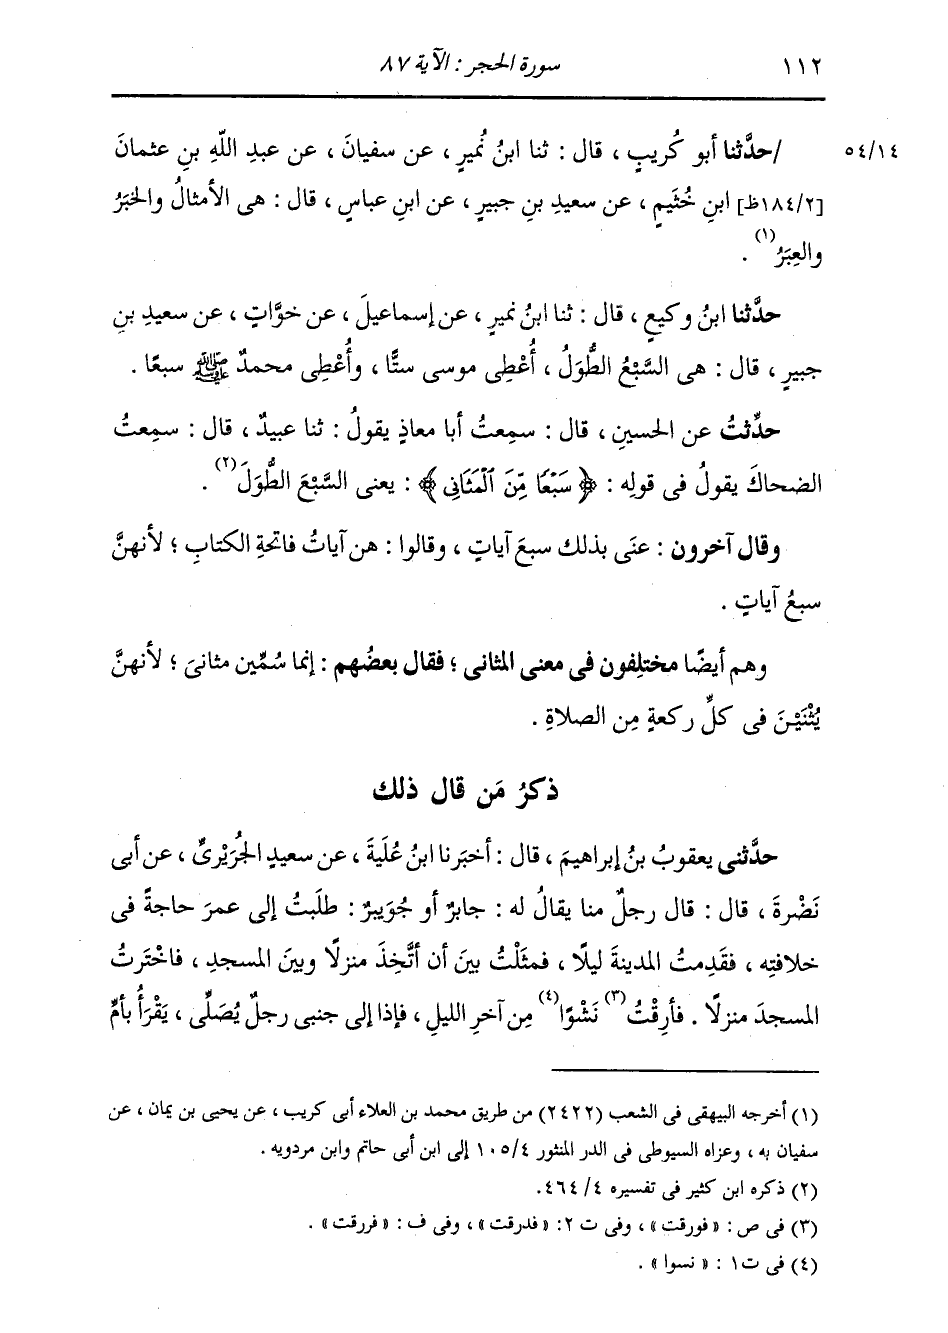 ١١٢ سورة الحجر : الآية ٨٧
٥٤/١٤ /حدَّثنا أبو كُريبٍ ، قال : ثنا ابنُ نُميرٍ ، عن سفيانَ ، عن عبدِ اللَّهِ بنِ عثمانَ
[١٨٤/٢ظ] ابنِ خُثَيمٍ ، عن سعيدِ بنِ جبيرٍ ، عن ابنِ عباسٍ ، قال : هى الأمثالُ والخبَرُ
والعِبَرُ(١) .
حدَّثنا ابنُ وكيعٍ ، قال : ثنا ابنُ نميرٍ ، عن إسماعيلَ ، عن خوَّاتٍ ، عن سعيدِ بنِ
جبيرٍ ، قال : هى السَّبْعُ الطُّوَلُ ، أُعْطِى موسى ستًّا ، وأُعْطِى محمدٌ ﷺ سبعًا .
حدِّثتُ عن الحسينِ ، قال : سمِعتُ أبا معاذٍ يقولُ : ثنا عبيدٌ ، قال : سمِعتُ
الضحاكَ يقولُ فى قولِه : ﴿ سَبْعًا مِّنَ ٱلْمَثَانِى ﴾ : يعنى السَّبْعَ الطُّوَلَ(٢) .
وقال آخرون : عنَى بذلك سبعَ آياتٍ ، وقالوا : هن آياتُ فاتحةِ الكتابِ ؛ لأنهنَّ
سبعُ آياتٍ .
وهم أيضًا مختلِفون فى معنى المثانى ؛ فقال بعضُهم : إنما سُمِّين مثانىَ ؛ لأنهنَّ
يُثْنَيْنَ فى كلِّ ركعةٍ مِن الصلاةِ .
ذكرُ مَن قال ذلك
حدَّثنى يعقوبُ بنُ إبراهيمَ ، قال : أخبَرنا ابنُ عُلَيةَ ، عن سعيدٍ الجُرَيْرىِّ ، عن أبى
نَضْرةَ ، قال : قال رجلٌ منا يقالُ له : جابرٌ أو جُوَيبرٌ : طلَبتُ إلى عمرَ حاجةً فى
خلافتِه ، فقَدِمتُ المدينةَ ليلًا ، فمثَلْتُ بينَ أن أتَّخِذَ منزلًا وبينَ المسجدِ ، فاخْتَرتُ
المسجدَ منزلًا . فأرِقْتُ(٣) نَشْوًا(٤) مِن آخرِ الليلِ ، فإذا إلى جنبى رجلٌ يُصَلِّى ، يَقْرَأُ بأمِّ
(١) أخرجه البيهقى فى الشعب (٢٤٢٢) من طريق محمد بن العلاء أبى كريب ، عن يحيى بن يمان ، عن
سفيان به ، وعزاه السيوطى فى الدر المنثور ١٠٥/٤ إلى ابن أبى حاتم وابن مردويه .
(٢) ذكره ابن كثير فى تفسيره ٤/ ٤٦٤.
(٣) فى ص : « فورقت » ، وفى ت ٢: « فدرقت » ، وفى ف : « فررقت » .
(٤) فى ت١ : « نسوا » .